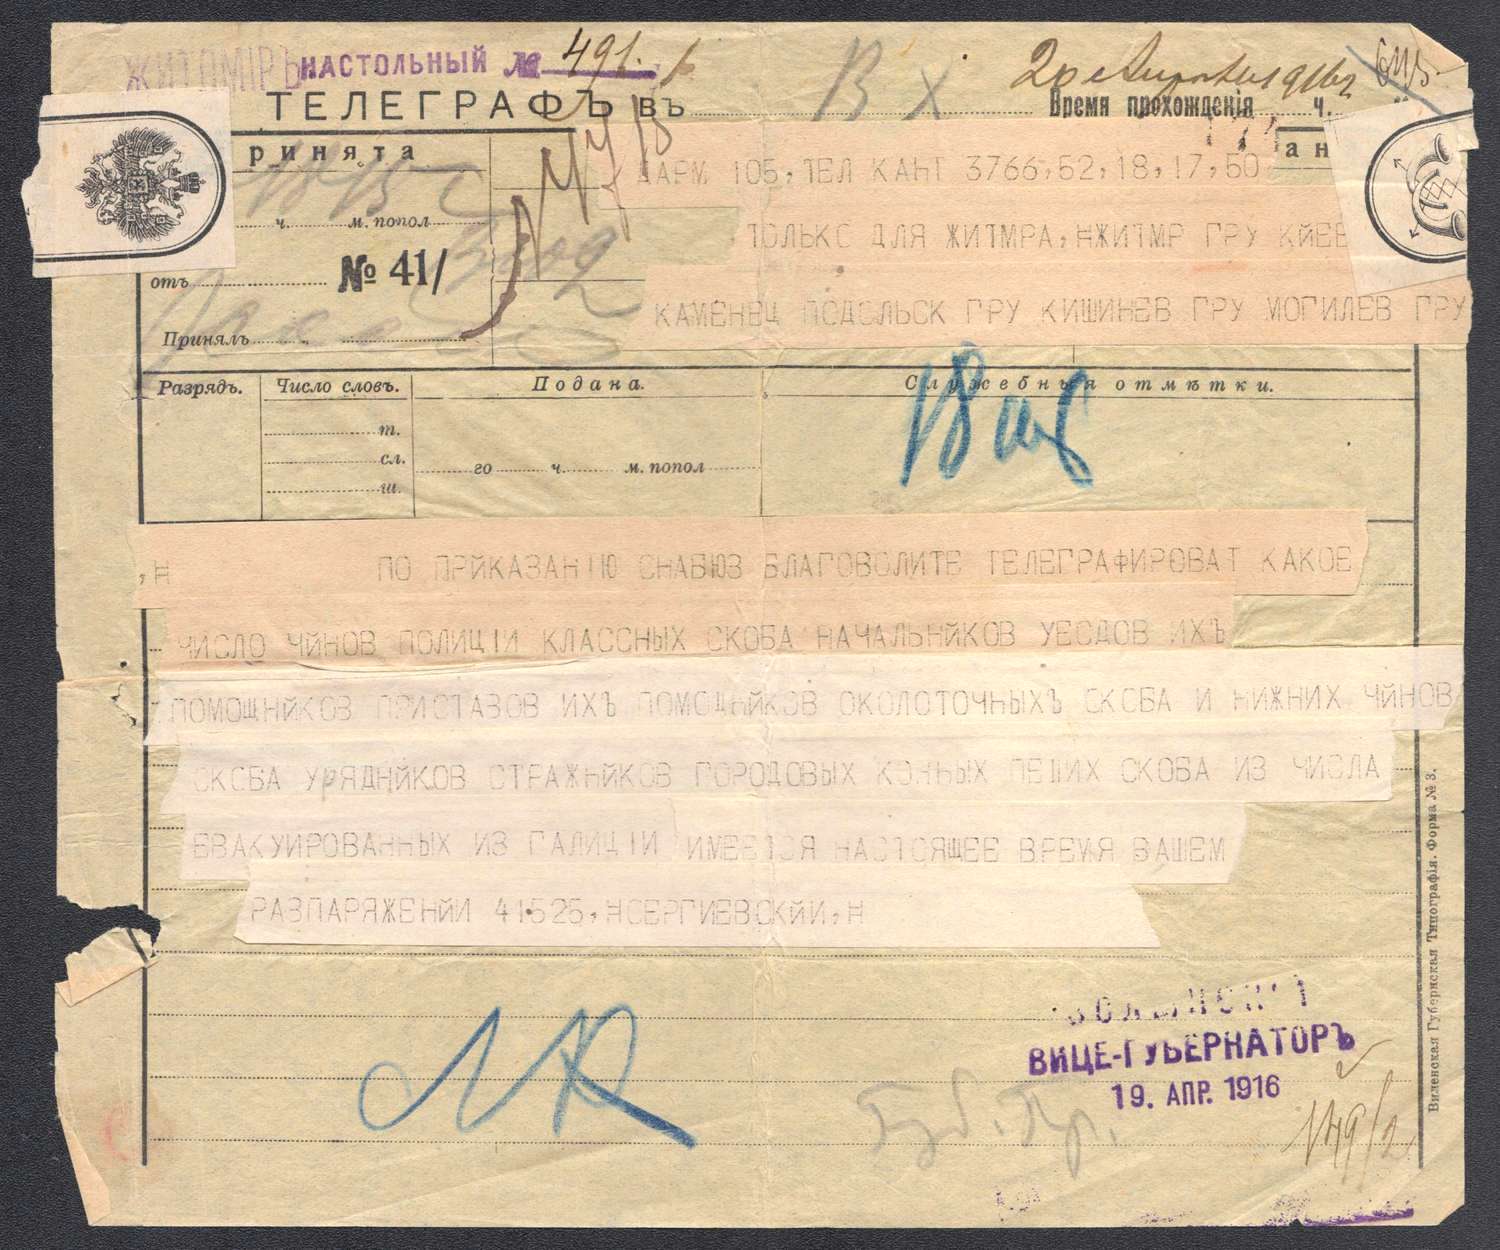 ЖИТОМІРЪ НАСТОЛЬНЫЙ № 491.
ТЕЛЕГРАФЪ ВЪ
В Х
Время прохожденія ч.
ринята
ан
ДАРМ 105, ТЕЛ КАНТ 3766,52,18,17,50
ч. м. попол
ТОЛЬКО ДЛЯ ЖИТМРА,НЖИТМР ГРУ КЙЕВ
отъ № 41/
КАМЕНЕЦ ПОДОЛЬСК ГРУ КИШИНЕВ ГРУ МОГИЛЕВ ГРУ
Принялъ
Разрядъ. Число словъ. Подана. Служебныя отмѣтки.
18
т.
сл.
го ч. м. попол
ш.
,Н ПО ПРЙКАЗАНІЮ СНАБЮЗ БЛАГОВОЛИТЕ ТЕЛЕГРАФИРОВАТ КАКОЕ
ЧИСЛО ЧЙНОВ ПОЛИЦІИ КЛАССНЫХ СКОБА НАЧАЛЬНЙКОВ УЕСДОВ ИХЪ
ПОМОЩНЙКОВ ПРИСТАВОВ ИХЪ ПОМОЩНЙКОВ ОКОЛОТОЧНЫХЪ СКОБА И НИЖНИХ ЧЙНОВ
СКОБА УРЯДНЙКОВ СТРАЖНЙКОВ ГОРОДОВЫХ КОННЫХ ПЕШИХ СКОБА ИЗ ЧИСЛА
ЕВАКУИРОВАННЫХ ИЗ ГАЛИЦІИ ИМЕЕТСЯ НАСТОЯЩЕЕ ВРЕМЯ ВАШЕМ
РАЗПАРЯЖЕНЙИ 41525,НСЕРГИЕВСКЙИ,Н
ВИЦЕ-ГУБЕРНАТОРЪ
19. АПР. 1916
Губ. Пр.
1149/2
Виленская Губернская Типографія. Форма № 3.